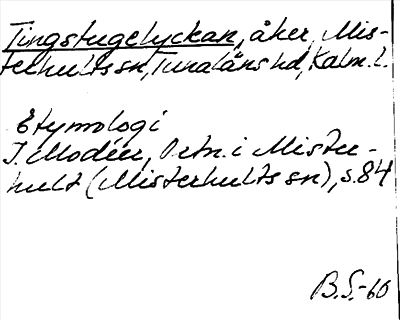 Tingstugelyckan, åker, Mis-
terhults sn, Tunaläns hd, Kalm. l.
Etymologi
I. Modéer, Ortn. i Mister-
hult (Misterhults sn), s. 84
B.S.-60